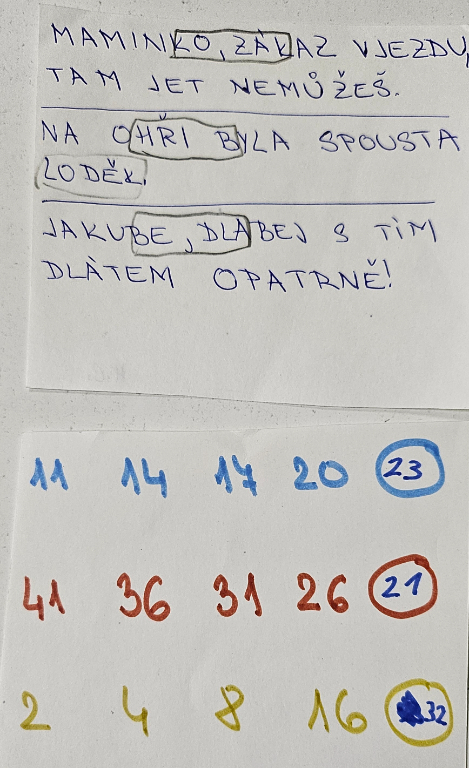 MAMINKO, ZÁKAZ VJEZDU,
TAM JET NEMŮŽEŠ.
NA OHŘI BYLA SPOUSTA
LODĚK.
JAKUBE, DLABEJ S TÍM
DLÁTEM OPATRNĚ!
11 14 17 20 23
41 36 31 26 21
2 4 8 16 32